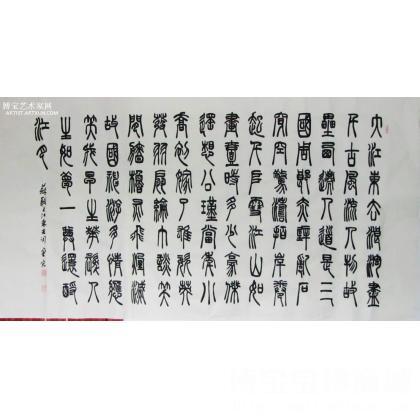 博宝艺术家网
ARTIST.ARTXUN.COM
大江東去浪淘盡
千古風流人物故
壘西邊人道是三
國周郎赤壁亂石
穿空驚濤拍岸卷
起千堆雪江山如
畫壹時多少豪傑
遙想公瑾當年小
喬初嫁了雄姿英
發羽扇綸巾談笑
間檣櫓灰飛煙滅
故國神游多情應
笑我早生華髮人
生如夢一尊還酹
江月